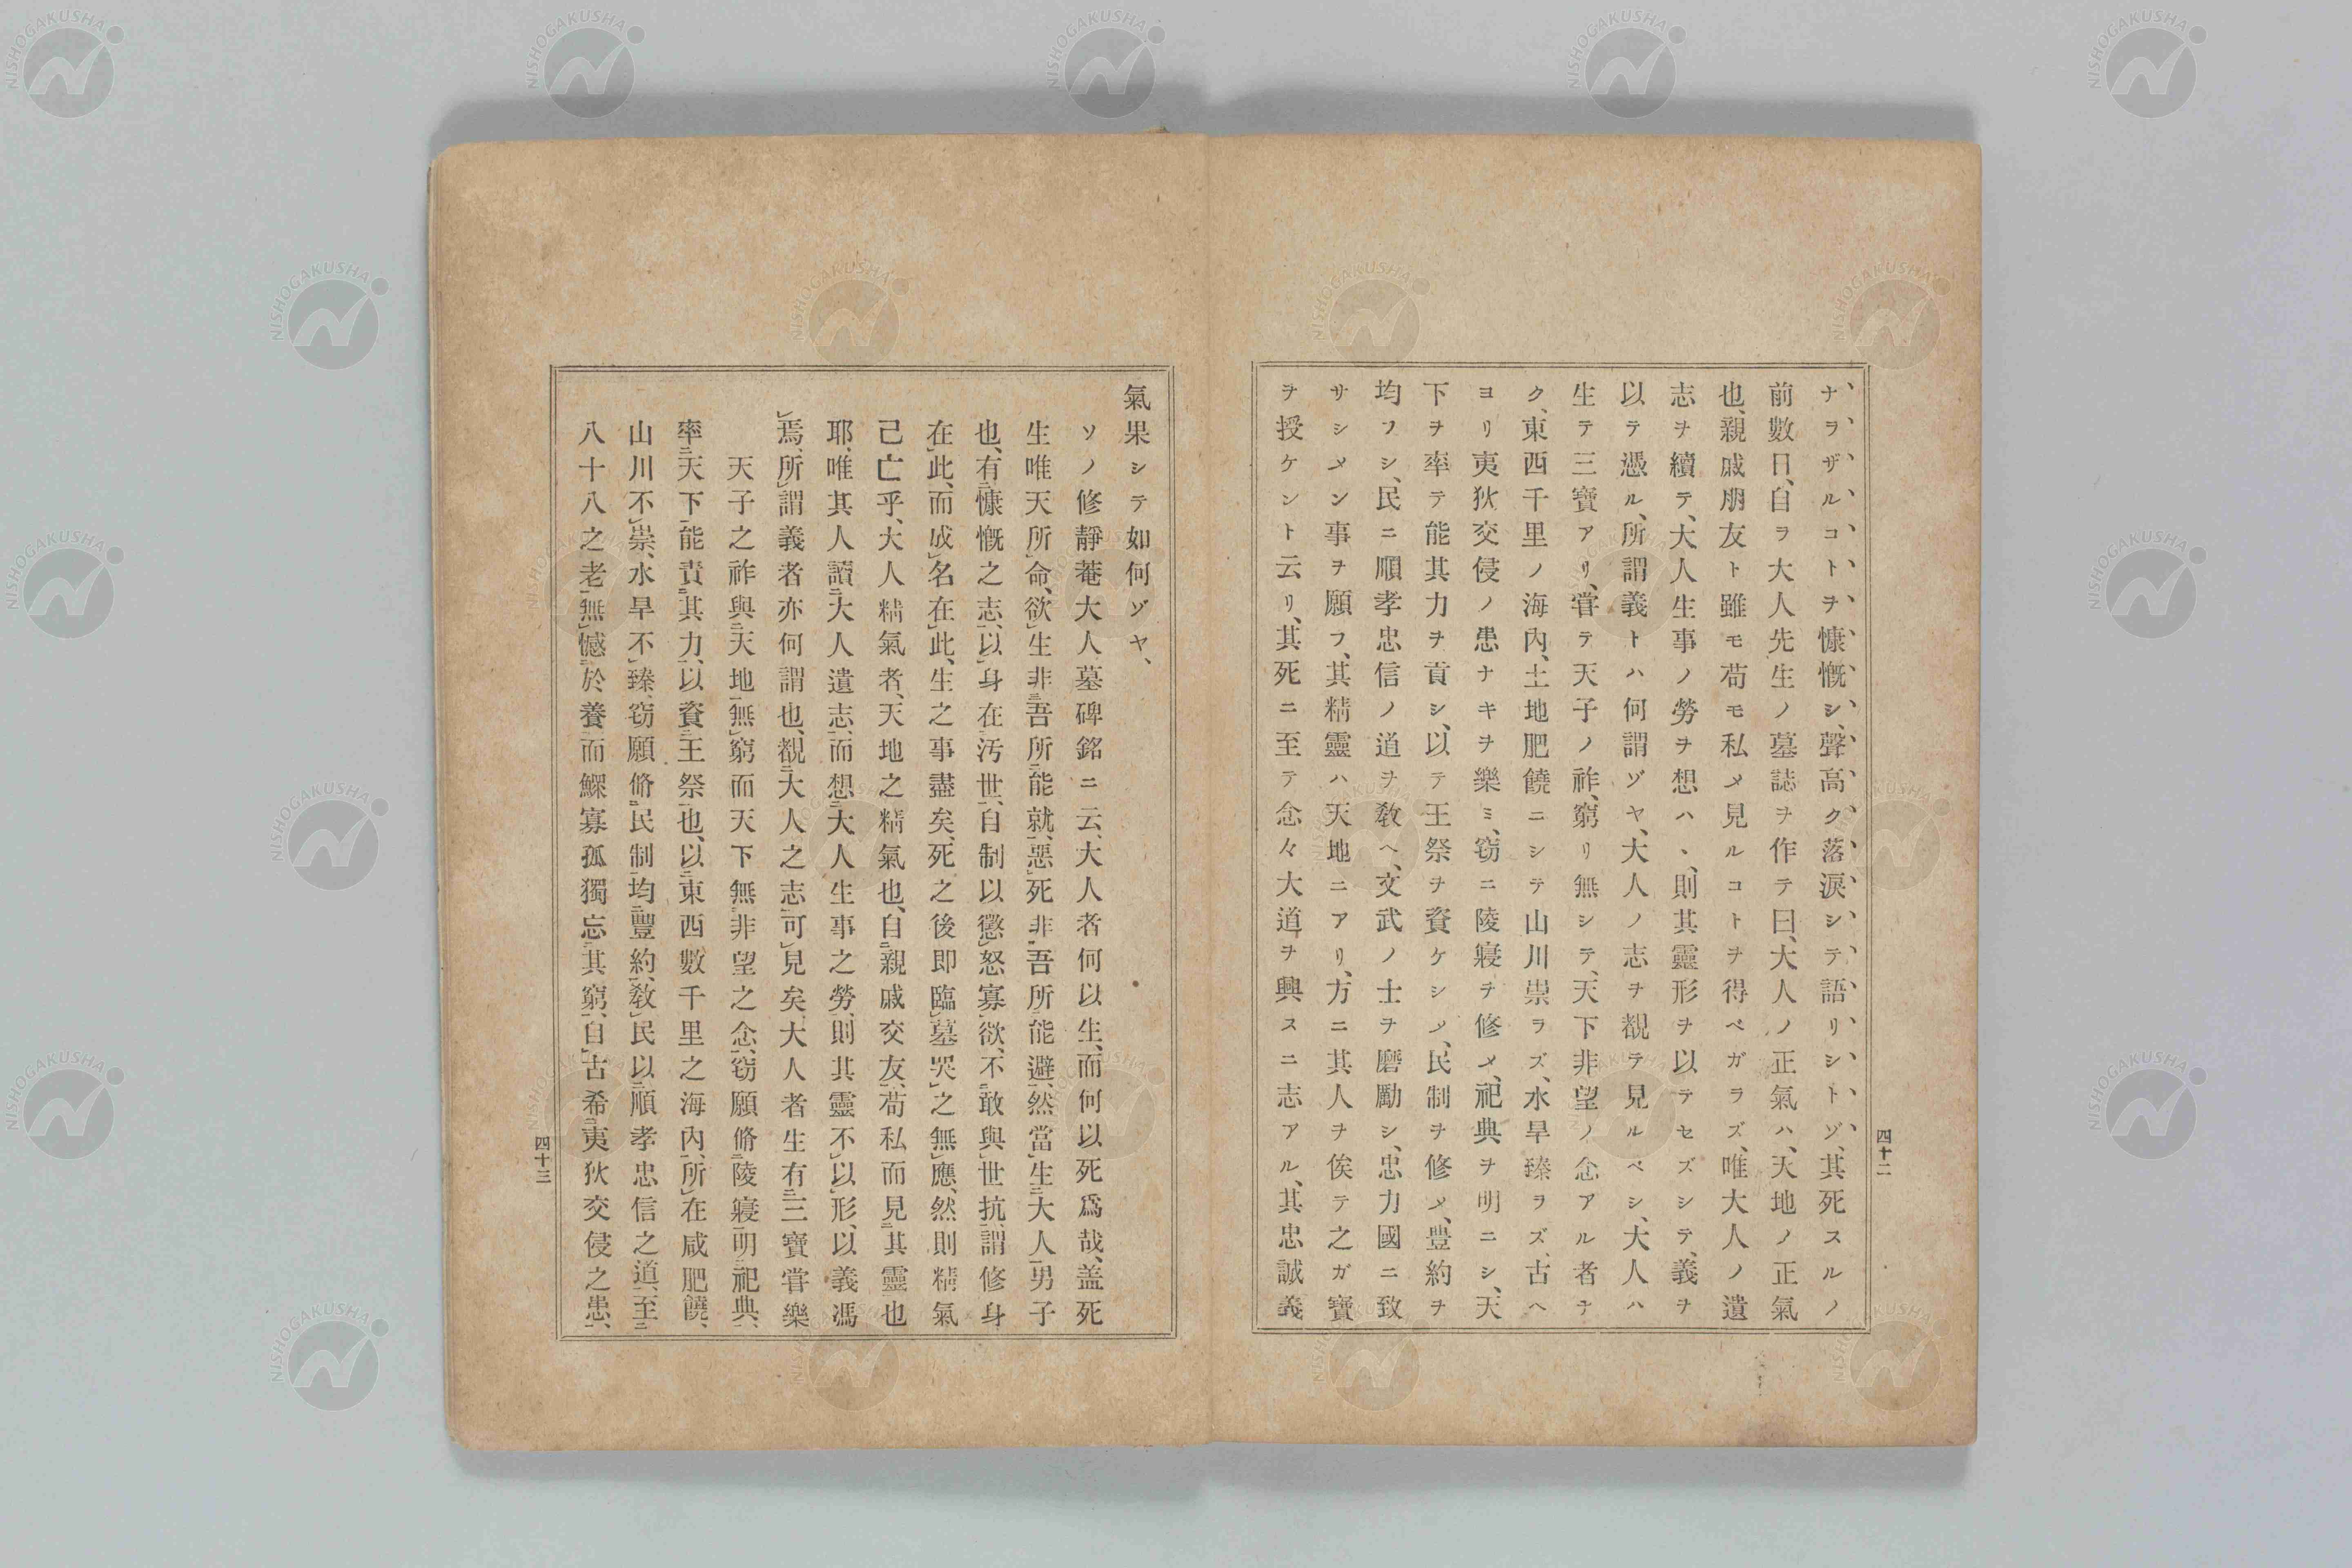 ナヲザルコトヲ慷慨シ、聲高ク落淚シテ語リシトゾ、其死スルノ
前數日、自ヲ大人先生ノ墓誌ヲ作テ曰、大人ノ正氣ハ、天地ノ正氣
也、親戚朋友ト雖モ苟モ私メ見ルコトヲ得ベガラズ、唯大人ノ遺
志ヲ續テ、大人生事ノ勞ヲ想ハヽ、則其靈形ヲ以テセズシテ、義ヲ
以テ憑ル、所謂義トハ何謂ゾヤ、大人ノ志ヲ覩テ見ルベシ、大人ハ
生テ三寶アリ、甞テ天子ノ祚、窮リ無シテ、天下非望ノ念アル者ナ
ク、東西千里ノ海內、土地肥饒ニシテ山川崇ヲズ、水旱臻ヲズ、古ヘ
ヨリ夷狄交侵ノ患ナキヲ樂ミ、窃ニ陵寢ヲ修メ、祀典ヲ明ニシ、天
下ヲ率テ能其力ヲ貢シ、以テ王祭ヲ資ケシメ、民制ヲ修メ、豊約ヲ
均フシ、民ニ順孝忠信ノ道ヲ敎ヘ、文武ノ士ヲ磨勵シ、忠力國ニ致
サシメン事ヲ願フ、其精靈ハ天地ニアリ、方ニ其人ヲ俟テ之ガ寶
ヲ授ケシト云リ、其死ニ至テ念々大道ヲ興スニ志アル、其忠誠義
四十二
氣果シテ如何ゾヤ、
ソノ修靜菴大人墓碑銘ニ云、大人者何以生、而何以死爲哉、盖死
生唯天所命、欲生非吾所能就、惡死非吾所能避、然當生大人男子
也、有慷慨之志、以身在汚世、自制以懲怒寡欲、不敢與世抗、謂修身
在此、而成名在此、生之事盡矣、死之後卽臨墓哭之無應、然則精氣
己亡乎、大人精氣者、天地之精氣也、自親戚交友、苟私而見其靈也
耶、唯其人讀大人遺志、而想大人生事之勞、則其靈不以形、以義馮
焉、所謂義者亦何謂也、覩大人之志可見矣、大人者生有三寶甞樂
天子之祚與天地無窮而天下無非望之念、窃願脩陵寢明祀典、
率天下能責其力、以資王祭也、以東西數千里之海內、所在咸肥饒、
山川不崇、水旱不臻、窃願脩民制均豐約、敎民以順孝忠信之道、至
八十八之老無憾於養而鰥寡孤獨忘其窮、自古希夷狄交侵之患、
四十三